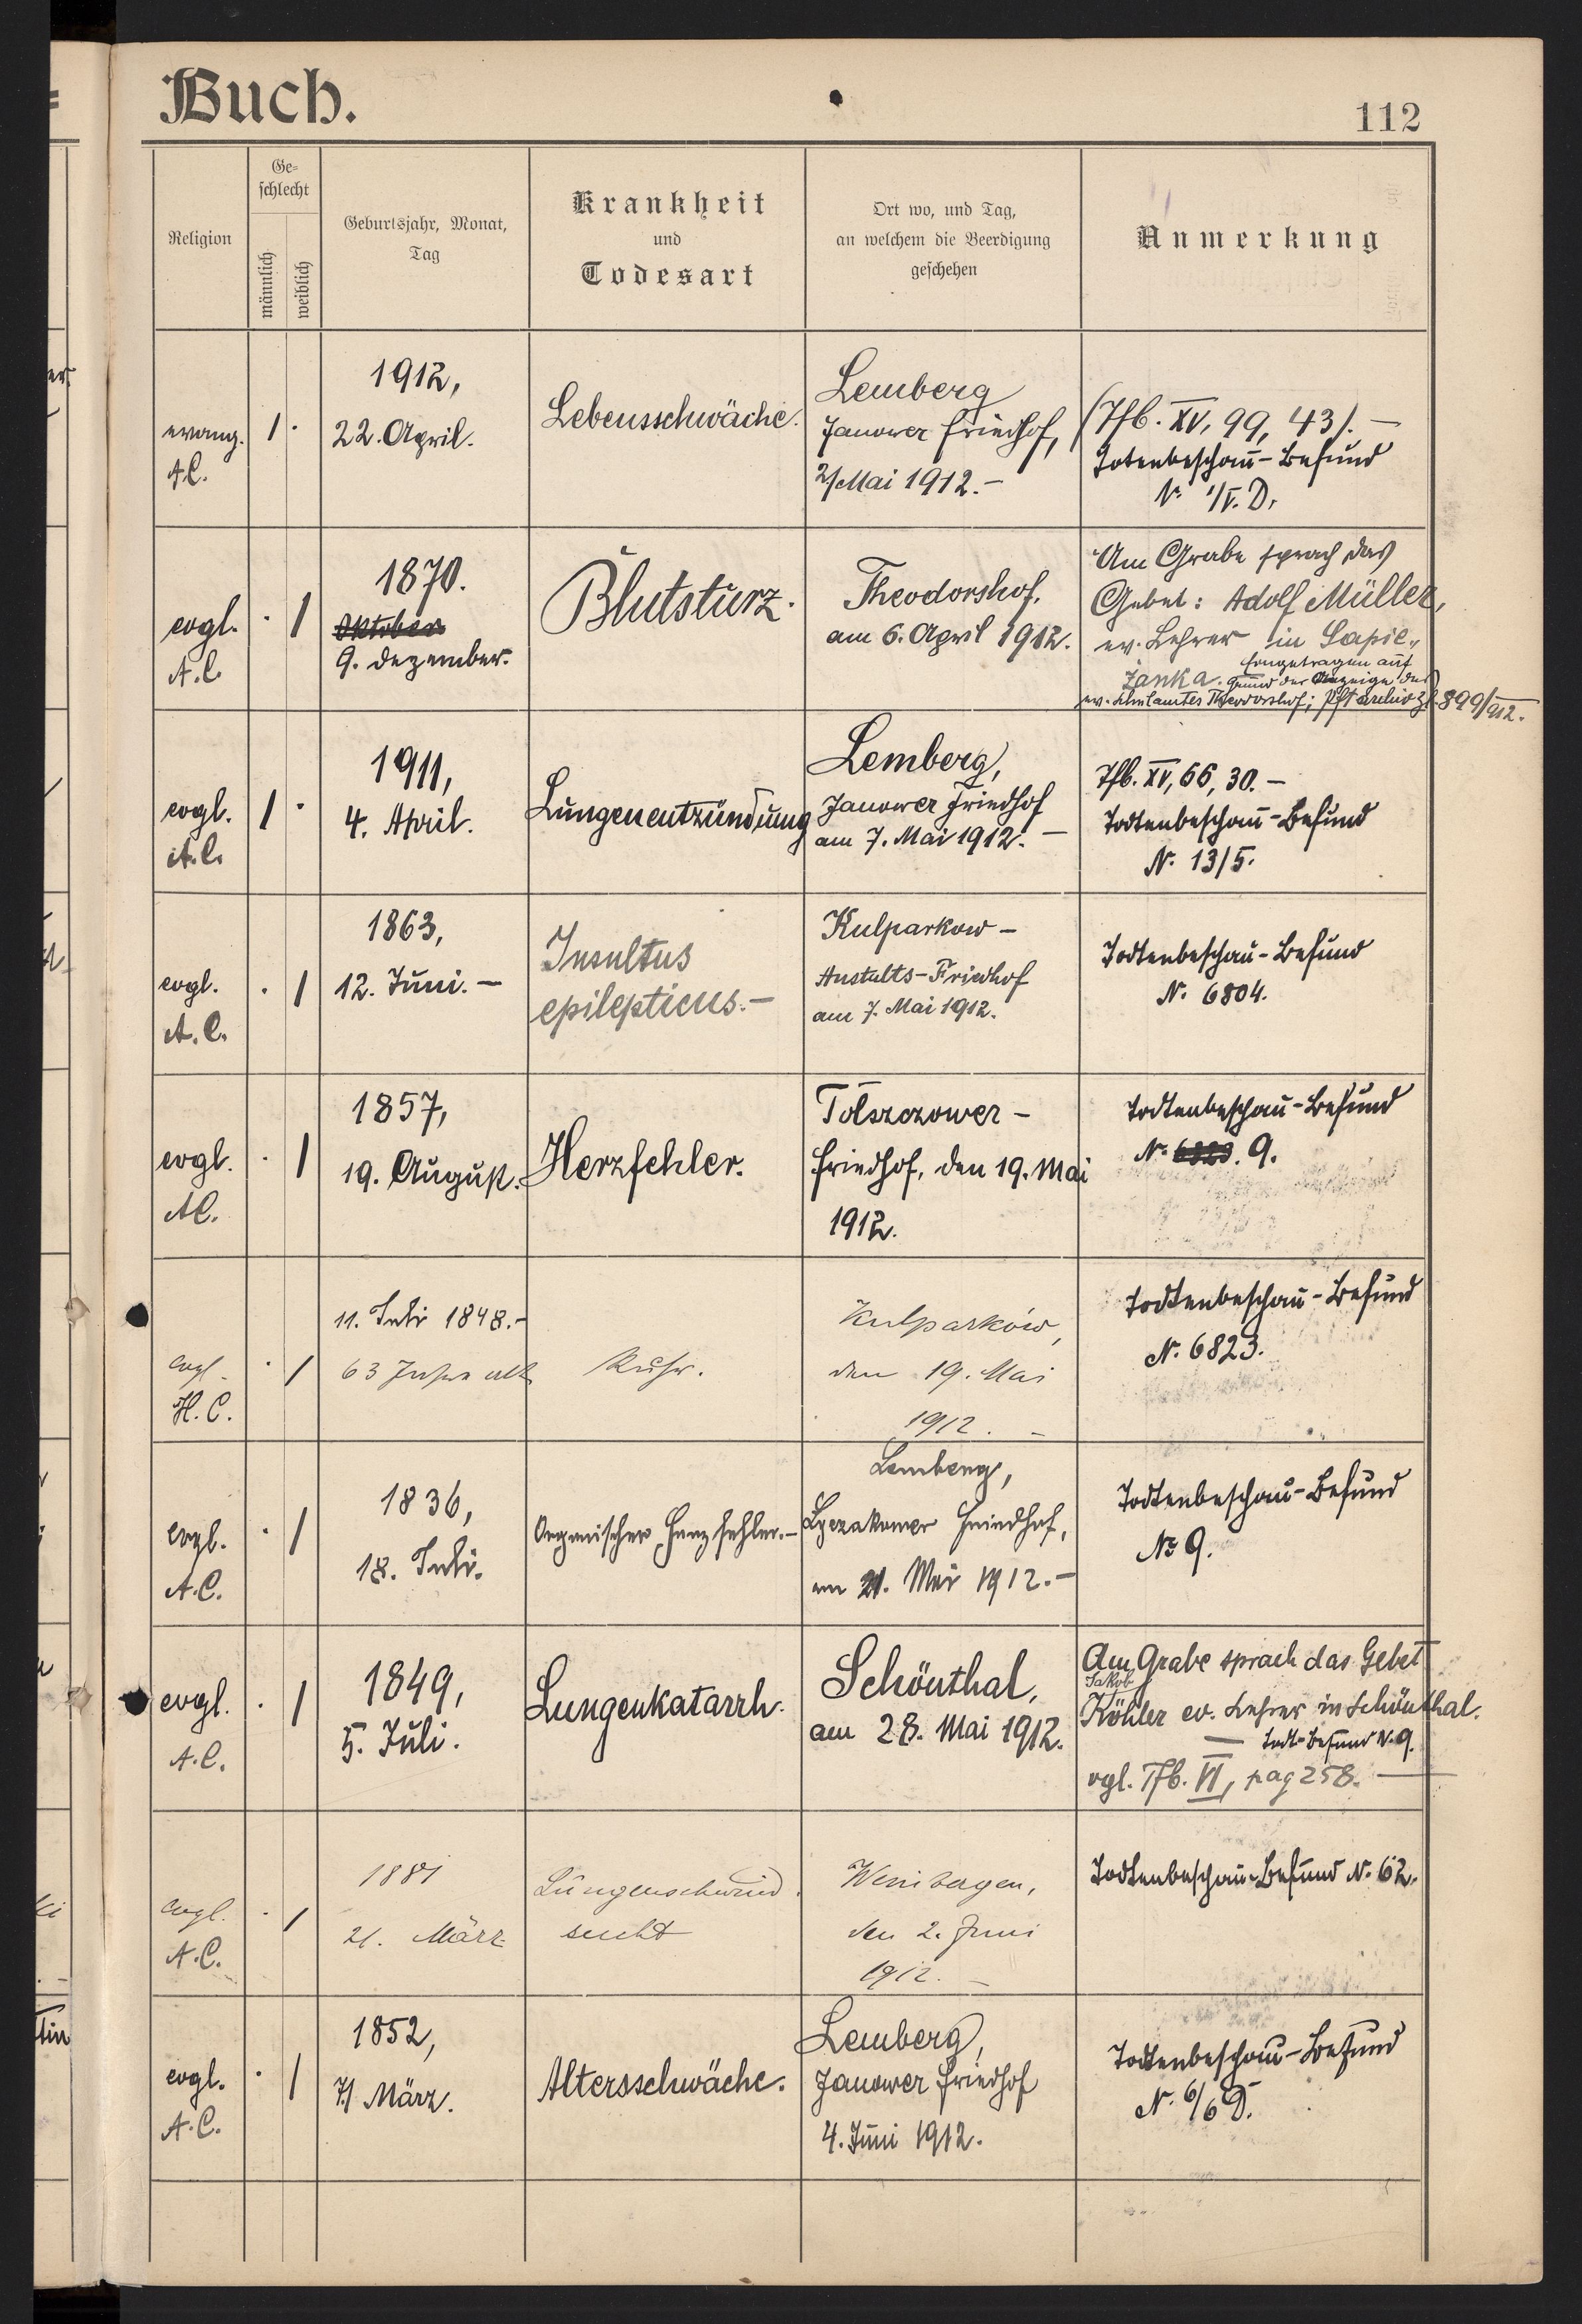 Buch.
112
Religion
Ge-
schlecht
männlich
weiblich
Geburtsjahr, Monat,
Tag
Krankheit
und
Todesart
Ort wo, und Tag,
an welchem die Beerdigung
geschehen
Anmerkung
evang.
A.C.
1 .
1912,
22. April.
Lebensschwäche.
Lemberg
Janower Friedhof,
2/Mai 1912.-
(Tfb. XV, 99, 43). -
Totenbeschau-Befund
N. 1/V. D.
evgl.
A.C.
. 1
1870.
Oktober
9. Dezember.
Blutsturz.
Theodorshof,
am 6. April 1912.
Am Grabe sprach das
Gebet: Adolf Müller,
ev. Lehrer in Sapie-
żanka. Eingetragen auf
Grund der Anzeige des
ev. Schulamtes Theodorshof; Pfarchiv Zl. 899/912.
evgl.
A.C.
1 .
1911,
4. April.
Lungenentzündung
Lemberg,
Janower Friedhof
am 7. Mai 1912. -
Tfb. XV, 66, 30. -
Todtenbeschau-Befund
N. 13/5.
evgl.
A.C.
. 1
1863,
12. Juni. -
Insultus
epilepticus.-
Kulparkow -
Anstalts-Friedhof
am 7. Mai 1912.
Todtenbeschau-Befund
N. 6804.
evgl.
AC.
. 1
1857,
19. August.
Herzfehler.
Tolszczower -
Friedhof, den 19. Mai
1912.
Todtenbeschau-Befund
N. 6823. 9.
evgl.
H.C.
. 1
11. Juli 1848.-
63 Jahre alt
Ruhr.
Kulparków,
den 19. Mai
1912. -
Todtenbeschau-Befund
N. 6823.
evgl.
A.C.
. 1
1836,
18. Juli.
Organischer Herzfehler.-
Lemberg,
Lyczakower Friedhof,
am 21. Mai 1912.-
Todtenbeschau-Befund
No 9.
evgl.
A.C.
. 1
1849,
5. Juli.
Lungenkatarrh.
Schönthal,
am 28. Mai 1912.
Am Grabe sprach das Gebet
Jakob
Köhler ev. Lehrer in Schönthal.
- Todt-Befund N. 9.
vgl. Tfb. VI, pag 258. -
evgl.
A.C.
. 1
1881
21. März
Lungenschwind
sucht
Weinbergen,
den 2. Juni
1912. -
Todtenbeschau-Befund N. 62.
evgl.
A.C.
. 1
1852,
7/ März.
Altersschwäche.
Lemberg,
Janower Friedhof
4. Juni 1912.
Todtenbeschau-Befund
N. 6/6 D.